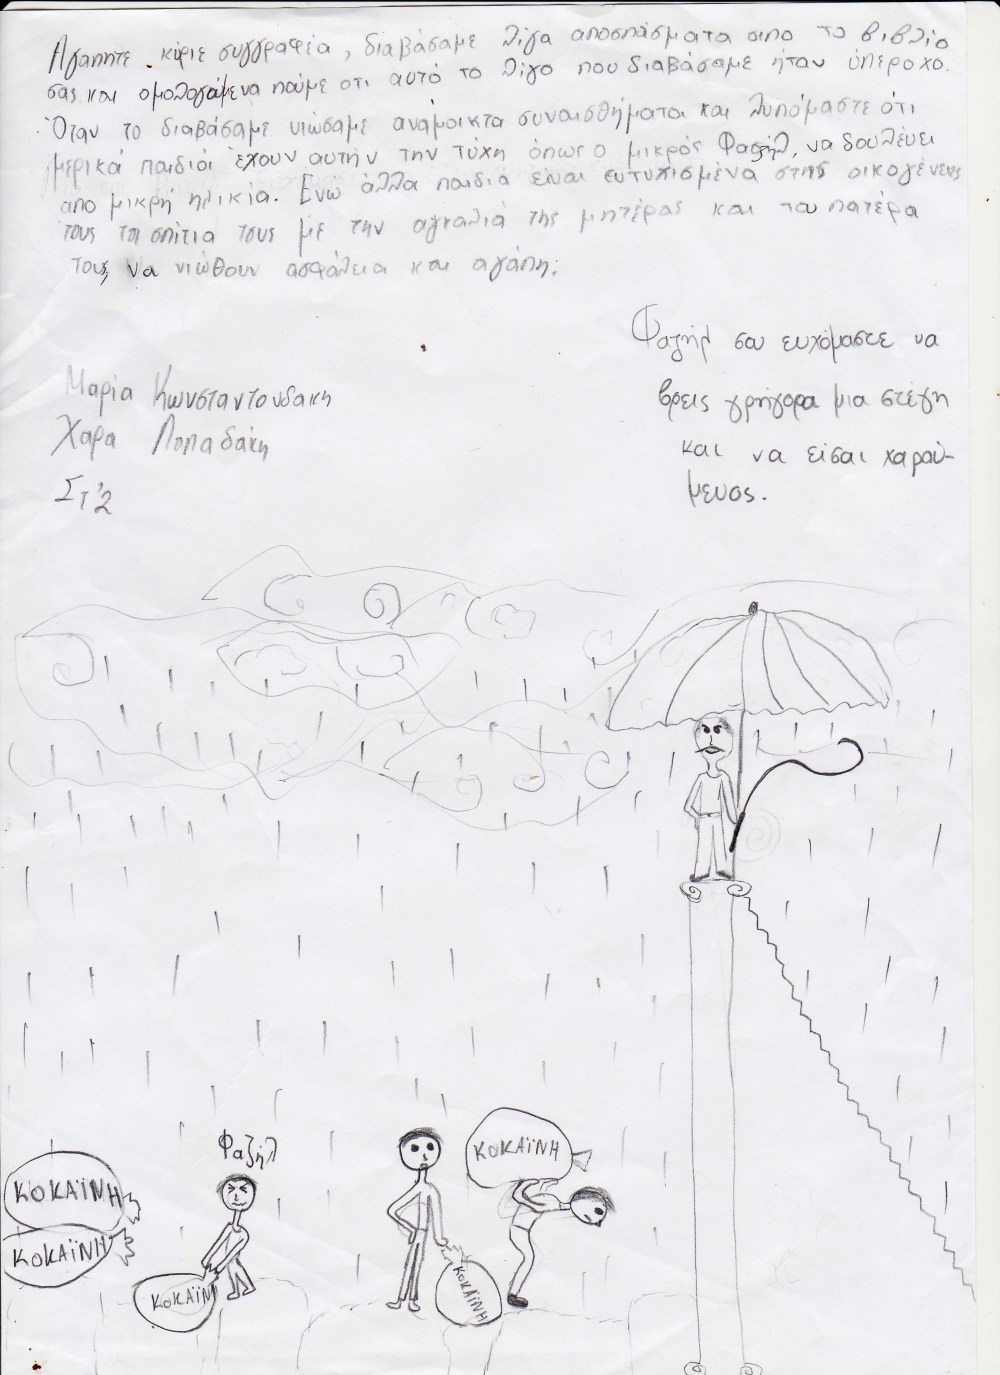 Αγαπητε κύριε συγγραφέα, διαβάσαμε λίγα αποσπάσματα απο το βιβλίο
σας και ομολογώμενα πούμε οτι αυτό το λίγο που διαβάσαμε ήταν ύπεροχο.
Όταν το διαβάσαμε νιώσαμε ανάμοικτα συναισθήματα και λυπόμαστε ότι
μερικά παιδιά έχουν αυτήν την τύχη όπως ο μικρός Φαζήλ, να δουλέυει
απο μικρή ηλικία. Ενώ άλλα παιδιά είναι ευτυπισμένα στης οικογένενες
τους τα σπίτια τους με την αγκαλιά της μητέρας και του πατέρα
τους, να νιώθουν ασφάλεια και αγάπη.
Φαζήλ σου ευχόμαστε να
βρεις γρήγορα μια στέγη
και να είσαι χαρού-
μενος.
Μαρία Κωνσταντουδακη
Χαρα Παπαδάκη
Στ'2
ΚΟΚΑΪΝΗ
ΚΟΚΑΪΝΗ
Φαζήλ
ΚΟΚΑΪΝ
ΚΟΚΑΪΝΗ
ΚΟΚΑΪΝΗ